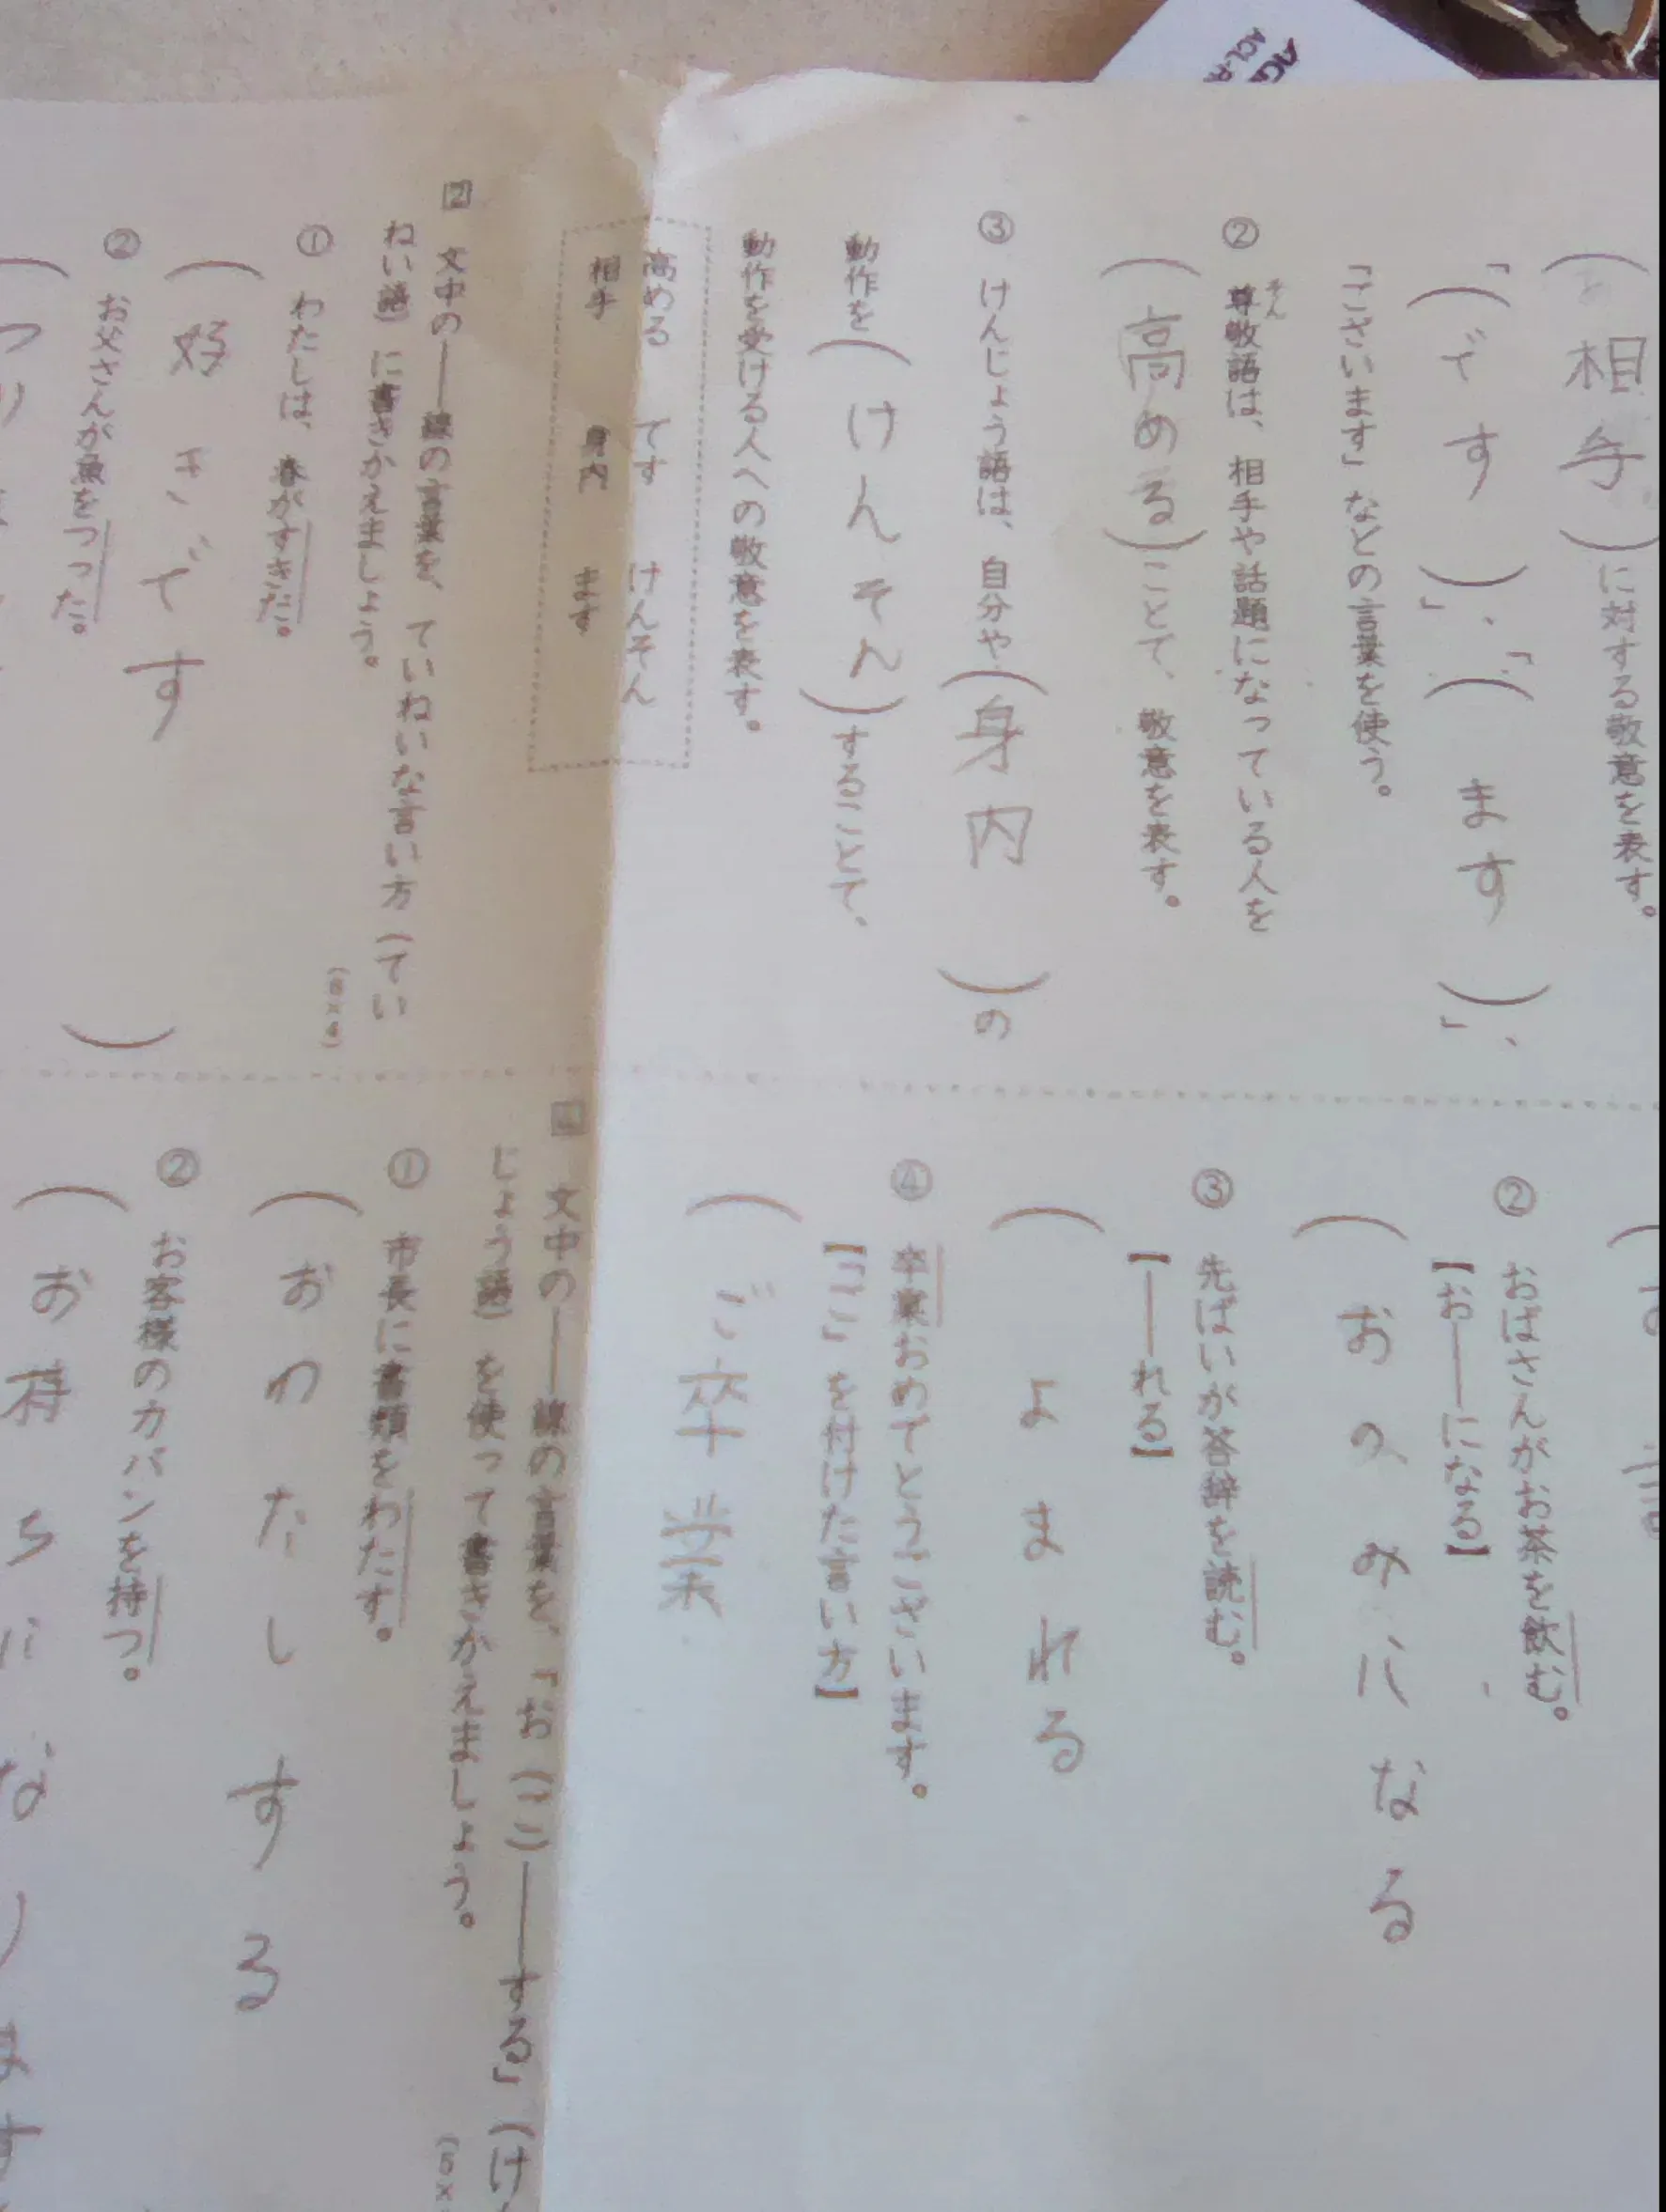 (相手)に対する敬意を表す。
「(です)」、「(ます)」、
「ございます」などの言葉を使う。
② 尊敬語は、相手や話題になっている人を
そん
(高める)ことで、敬意を表す。
③ けんじょう語は、自分や(身内)の
動作を(けんそん)することで、
動作を受ける人への敬意を表す。
高める です けんそん
相手 身内 ます
2 文中の――線の言葉を、ていねいな言い方(てい
ねい語)に書きかえましょう。
① わたしは、春がすきだ。
(好きです)
② お父さんが魚をつった。
② おばさんがお茶を飲む。
【お――になる】
(おのみになる
③ 先ぱいが答辞を読む。
【――れる】
(よまれる
④ 卒業おめでとうございます。
【「ご」を付けた言い方】
(ご卒業
4 文中の――線の言葉を、「お(ご)――する」(け
じょう語)を使って書きかえましょう。
① 市長に書類をわたす。
(おわたしする
② お客様のカバンを持つ。
(お持ちになります
ACL-A